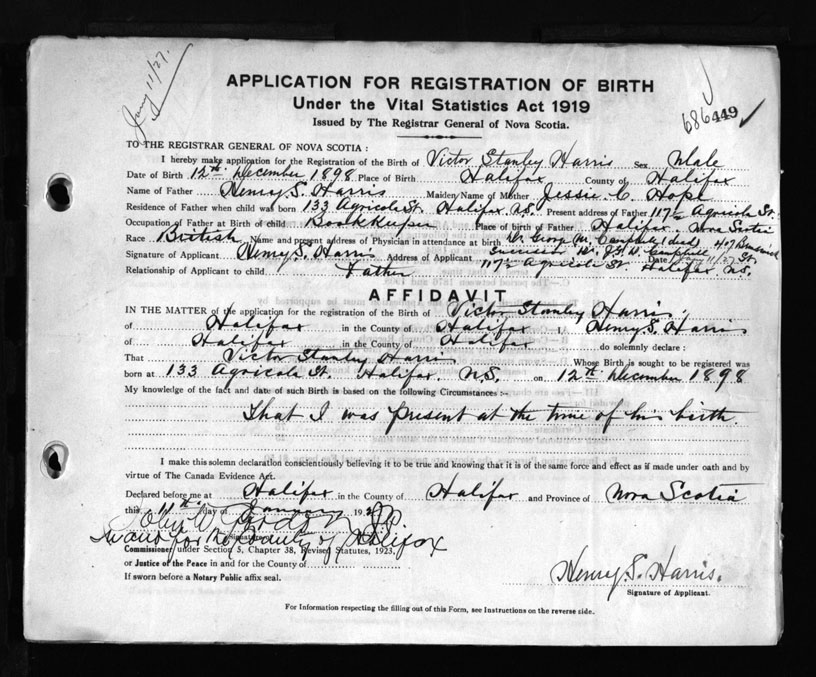 Jany 11/27.
APPLICATION FOR REGISTRATION OF BIRTH
Under the Vital Statistics Act 1919
Issued by The Registrar General of Nova Scotia.
686449
TO THE REGISTRAR GENERAL OF NOVA SCOTIA :
I hereby make application for the Registration of the Birth of Victor Stanley Harris Sex Male
Date of Birth 12th December 1898 Place of Birth Halifax County of Halifax
Name of Father Henry S. Harris Maiden Name of Mother Jessie C. Hope
Residence of Father when child was born 133 Agricola St. Halifax N.S. Present address of Father 117½ Agricola St.
Occupation of Father at Birth of child Bookkeeper Place of birth of Father Halifax. Nova Scotia
Race British Name and present address of Physician in attendance at birth Dr. George M. Campbell (dead) 407 Brunswick St.
Signature of Applicant Henry S. Harris Address of Applicant Date Jany 11/27
Relationship of Applicant to child Father 117½ Agricola St. Halifax N.S.
AFFIDAVIT
IN THE MATTER of the application for the registration of the Birth of Victor Stanley Harris,
of Halifax in the County of Halifax I, Henry S. Harris
of Halifax in the County of Halifax do solemnly declare :
That Victor Stanley Harris Whose Birth is sought to be registered was
born at 133 Agricola St. Halifax. N.S. on 12th December 1898
My knowledge of the fact and date of such Birth is based on the following Circumstances :-
That I was present at the time of his birth.
I make this solemn declaration conscientiously believing it to be true and knowing that it is of the same force and effect as if made under oath and by
virtue of The Canada Evidence Act.
Declared before me at Halifax in the County of Halifax and Province of Nova Scotia
this 11th day of January 192
John W. JP
in and for the County of Halifax
Commissioner under Section 5, Chapter 38, Revised Statutes, 1923,
or Justice of the Peace in and for the County of
If sworn before a Notary Public affix seal.
Henry S. Harris.
Signature of Applicant.
For Information respecting the filling out of this Form, see Instructions on the reverse side.